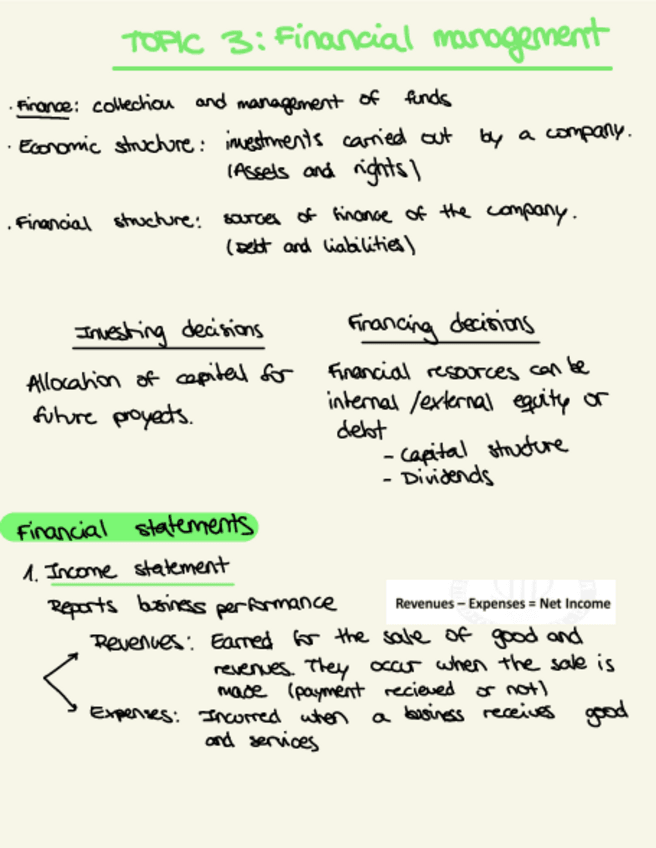 TOPIC 3: Financial management
· Finance: collection and management of funds
· Economic structure: investments carried out by a company.
(Assets and rights)
· Financial structure: sources of finance of the company.
(Debt and liabilities)
Investing decisions
Allocation of capital for
future proyects.
Financing decisions
Financial resources can be
internal /external equity or
debt
- Capital structure
- Dividends
Financial statements
1. Income statement
Reports business performance
Revenues – Expenses = Net Income
Revenues: Earned for the sale of good and
revenues. They occur when the sale is
made (payment recieved or not)
Expenses: Incorred when a business receives good
and services